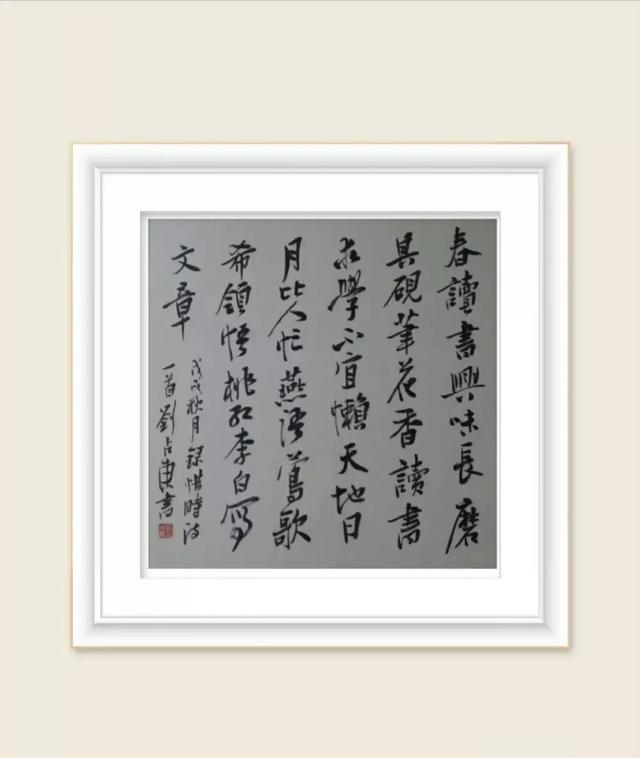 春讀書興味長磨
其硯筆花香讀書
求學不宜懶天地日
月比人忙燕語鶯歌
希領悟桃紅李白寫
文章
戊戌秋月錄惜時詩
一首劉占東書